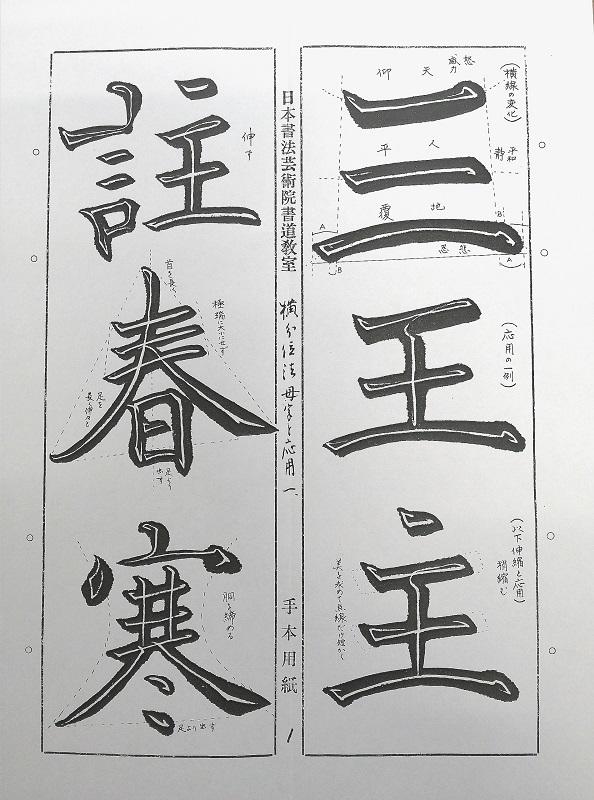 (横線の変化)
怒
威力
天
仰
平和
静
人
平
地
覆
慈
忍
A
B
A
B
三
(応用の一例)
王
(以下伸縮と応用)
稍縮む
主
日本書法芸術院書道教室
横分位法母字と応用一、
手本用紙
1
伸す
註
首を長く
極端に大小に せず
足を
長く伸々と
足より
出す
春
胴を締める
足より出す
寒